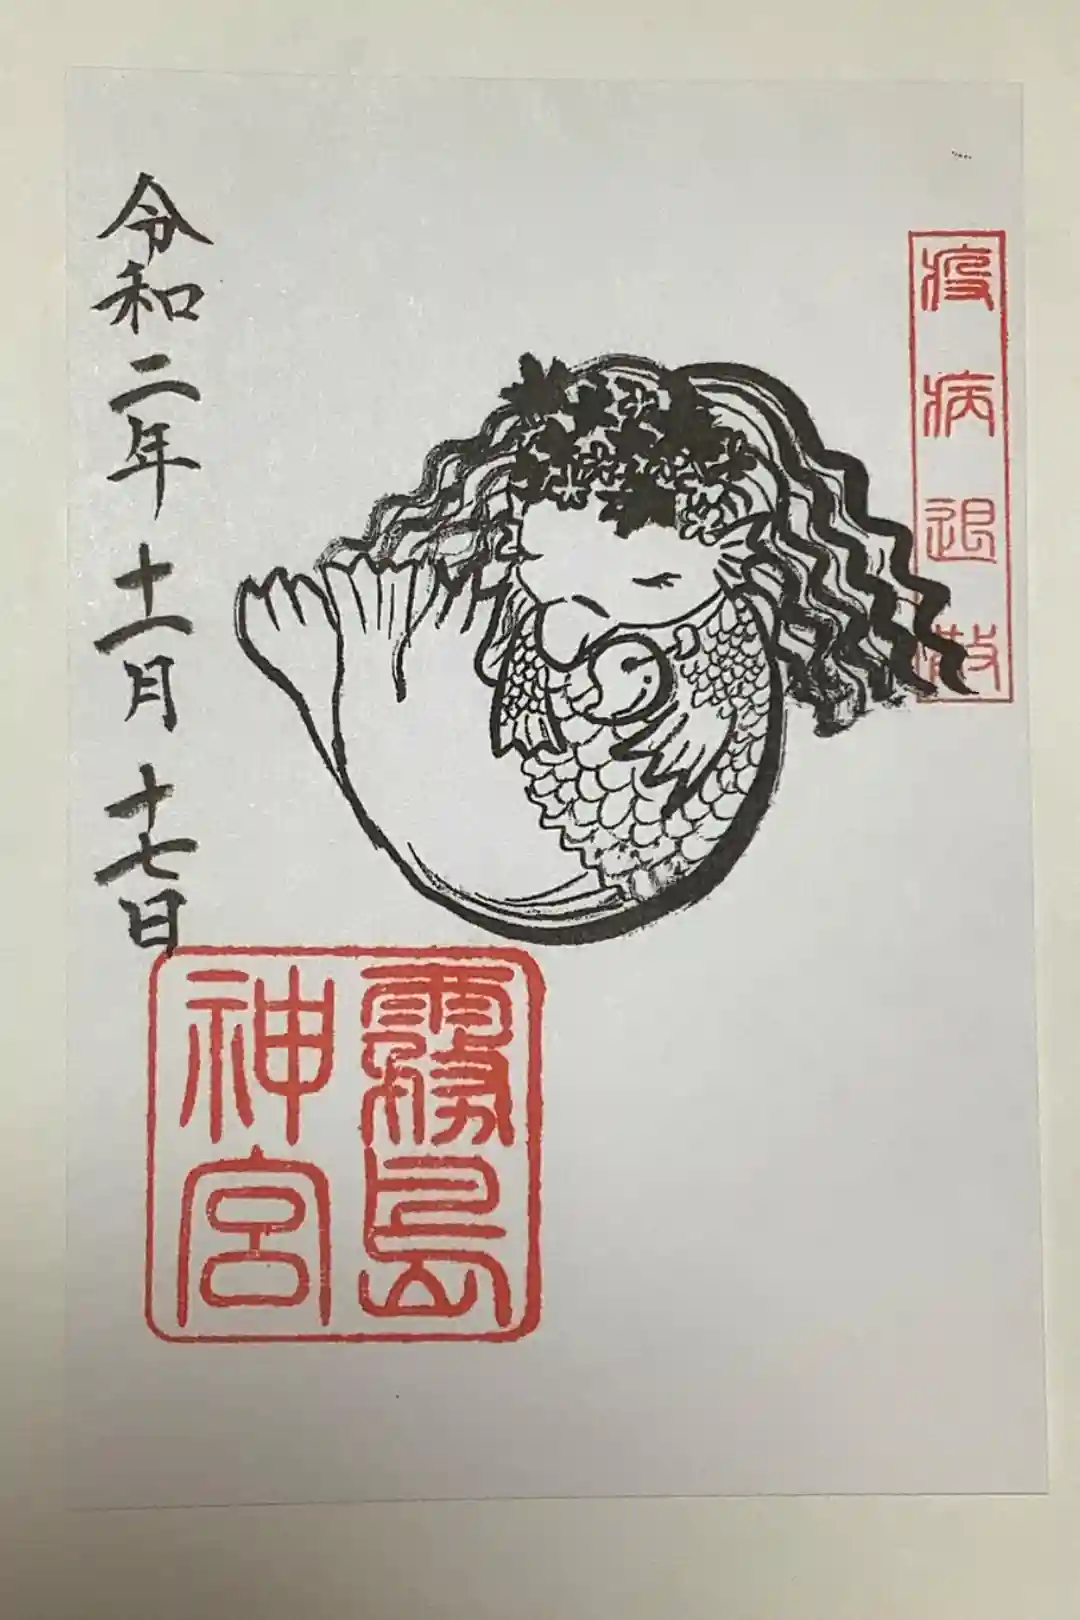 疫病退散
令和二年十一月十七日
霧島
神宮